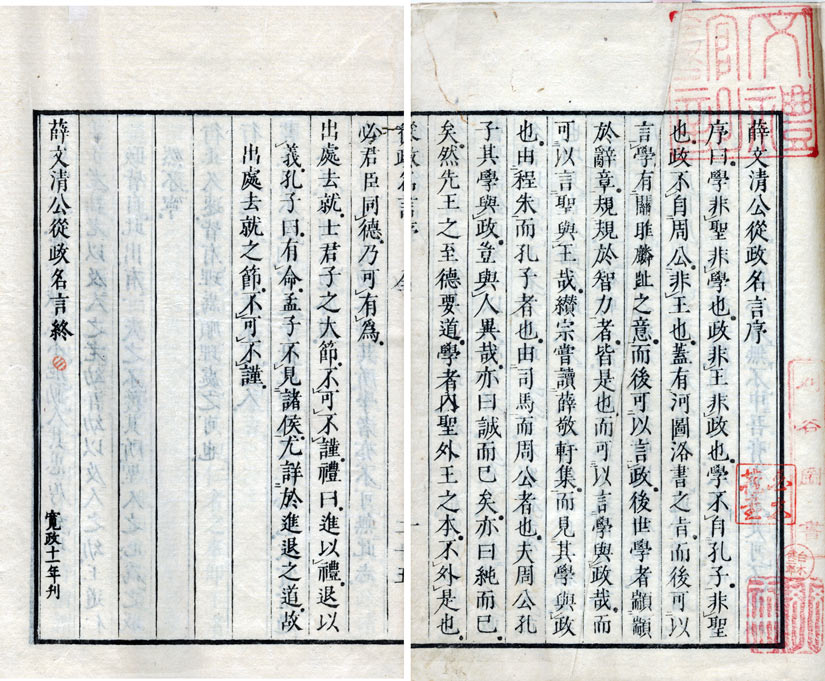 薛文清公從政名言序
序曰學非聖非學也政非王非政也學不自孔子非聖
也政不自周公非王也蓋有河圖洛書之旨而後可以
言學有關雎麟趾之意而後可以言政後世學者顓顓
於辭章規規於智力者皆是也而可以言學與政哉而
可以言聖與王哉纘宗嘗讀薛敬軒集而見其學與政
也由程朱而孔子者也由司馬而周公者也夫周公孔
子其學與政豈與人異哉亦曰誠而已矣亦曰純而已
矣然先王之至德要道學者內聖外王之本不外是也
從政名言序 一
必君臣同德乃可有為
出處去就士君子之大節不可不謹禮曰進以禮退以
義孔子曰有命孟子不見諸侯尤詳於進退之道故
出處去就之節不可不謹
薛文清公從政名言終
寬政十一年刊